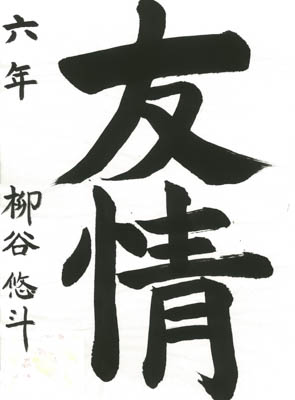 友情
六年 柳谷悠斗